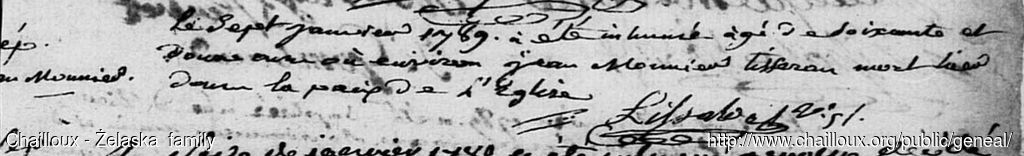 le Sept janvier 1789. a été inhumé agé de soixante et
ép. douze ans ou environ jean Monnier tisseran mort hier
Monnier. dans la paix de L'Eglise
Chailloux - Żelaska family
http://www.chailloux.org/public/geneal/